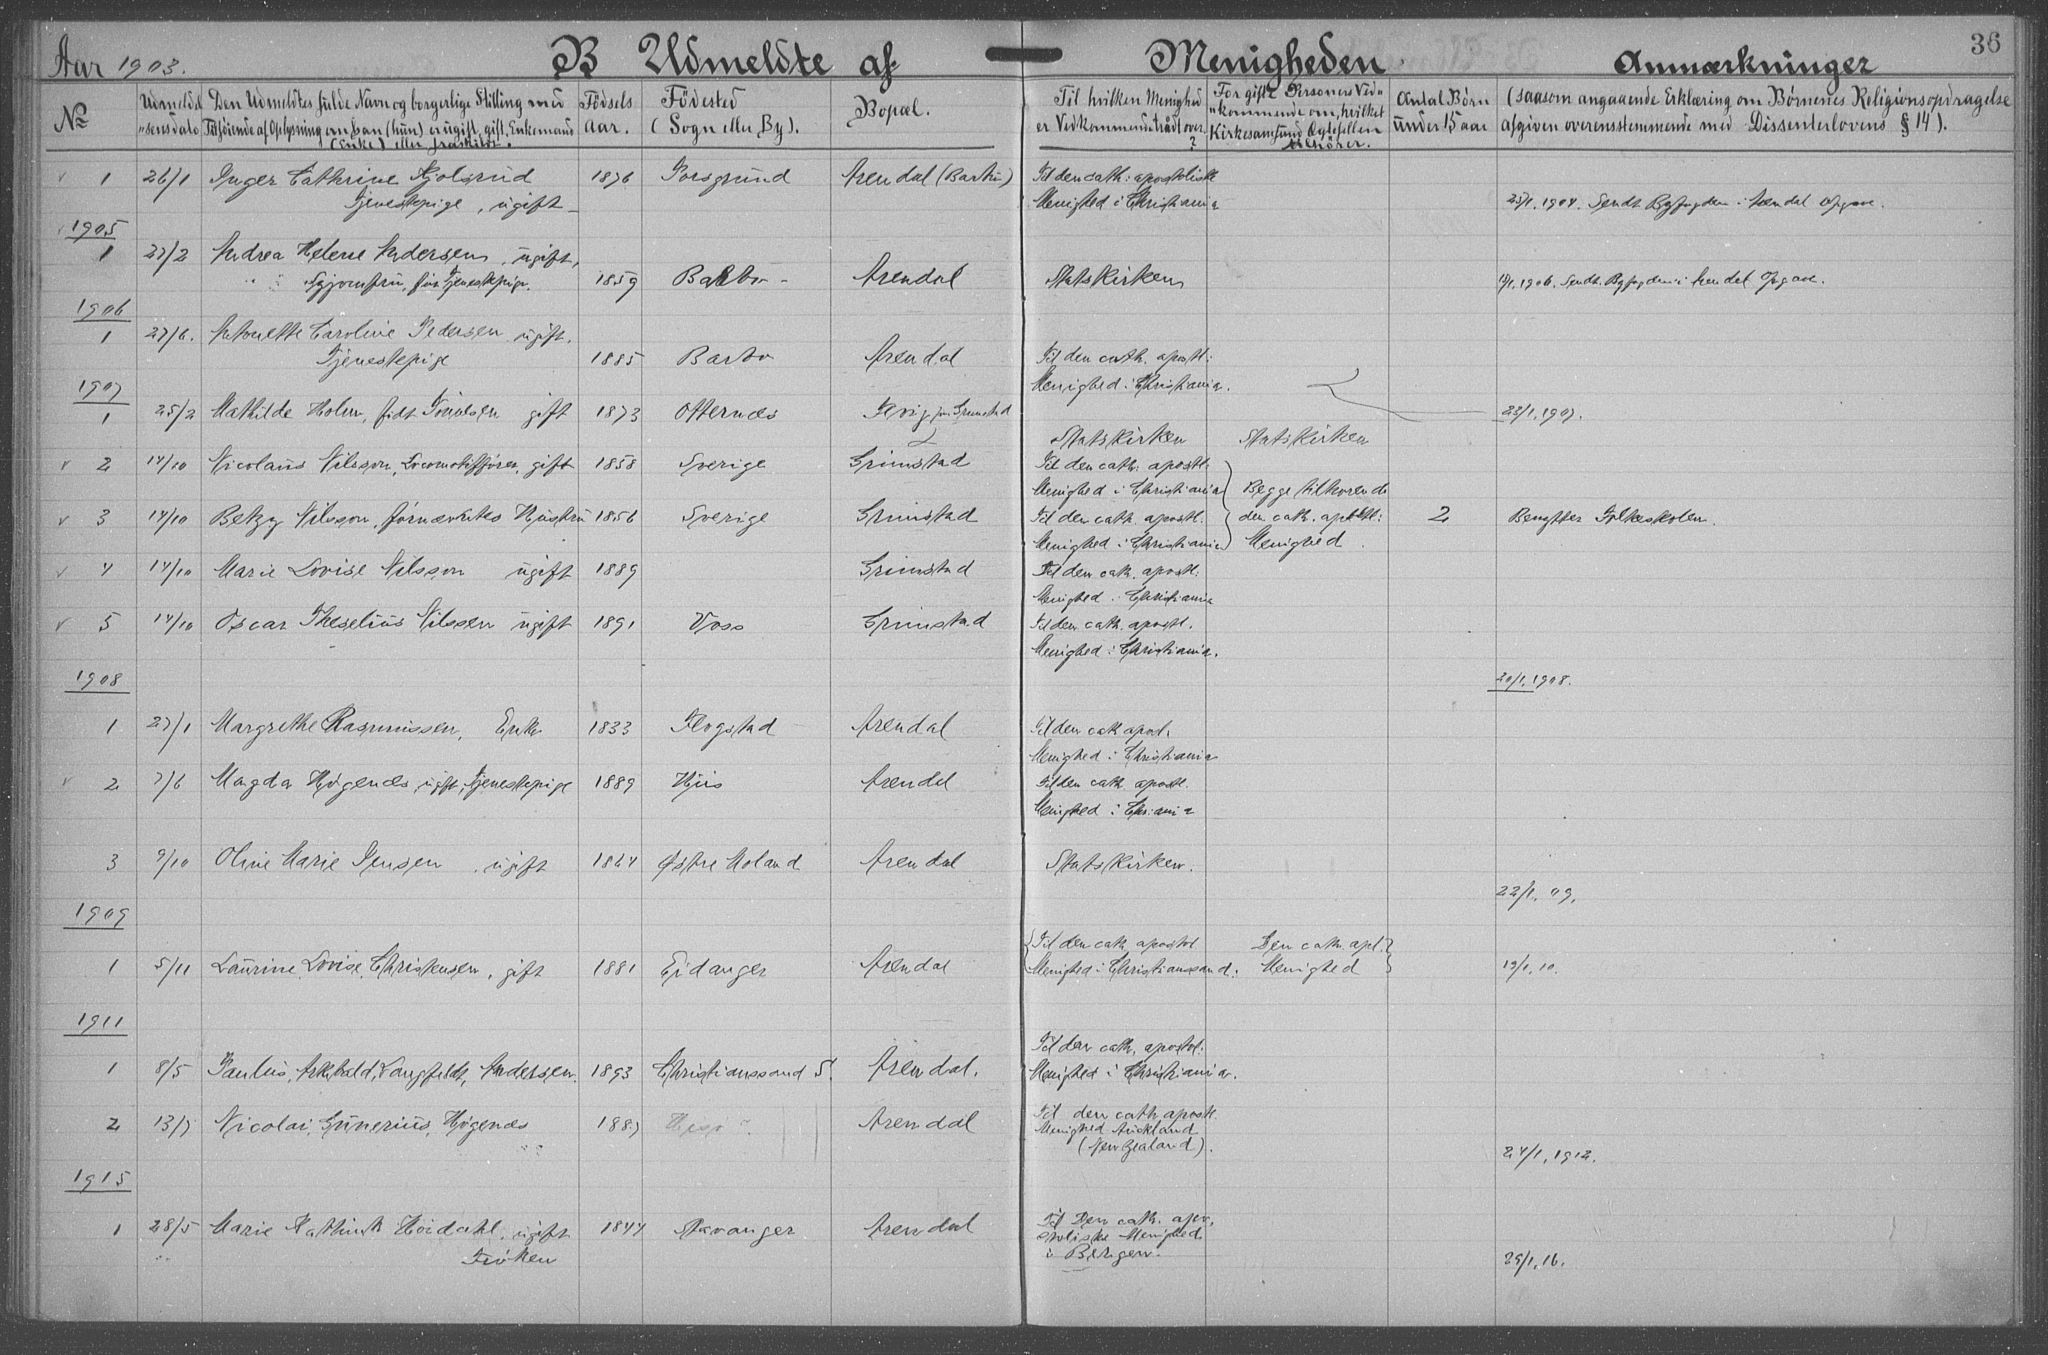 36
Aar 1903.
B Udmeldte af Menigheden. Anmærkninger
No
Udmeldelsesdato
Den Udmeldtes fulde Navn og borgerlige Stilling med Tilføiende af Oplysning om han (hun) er ugift, gift, Enkemand (Enke) eller fraskilt.
Födsels Aar.
Födested (Sogn eller By).
Bopæl.
Til hvilken Menighed er Vedkommende traadt over?
For gifte Personers Vedkommende om, hvilket Kirkesamfund Ægtefellen tilhører.
Antal Börn under 15 aar
(saasom angaaende Erklæring om Börnenes Religionsopdragelse afgiven overensstemmende med Dissenterlovens § 14).
1 26/1 Inger Cathrine 1876 Porsgrund Arendal (Barbu) Til den cath: apostoliske
Tjenestepige, ugift Menighed i Christiania 25/1. 1904. Sendt Byfogden i Arendal Opgave.
1905
1 27/2 Andrea Helene Andersen, ugift,
før Tjenestepige. 1859 Barbo Arendal Statskirken 1906. Sendt Byfogden i Arendal Opgave.
1906
1 27/6. Antonette Caroline Pedersen, ugift.
Tjenestepige 1885 Barbo Arendal Til den cath. apostl:
Menighed i Christiania.
1907
1 25/2 Mathilde Holm, født gift 1873 Otternes Grimstad 23/1, 1907.
Statskirken Statskirken
2 14/10 Nicolaus Nilsson, Locomotivfører, gift 1858 Sverige Grimstad Til den cath. apostl:
Menighed i Christiania Begge tilhørende
3 14/10 Betzy Nilsson, førnævntes Hustru 1856 Sverige Grimstad Til den cath. apostl. den cath. apostl: 2 Benytter Folkeskolen.
Menighed i Christiania Menighed.
4 14/10 Marie Lovise Nilsson ugift 1889 Grimstad Til den cath. apostl:
Menighed i Christiania
5 14/10 Oscar Theselius Nilssen ugift 1891 Voss Grimstad Til den cath. apostl.
Menighed i Christiania.
1908 20/1, 1908.
1 27/1 Margrethe Rasmussen, Enke 1833 Arendal Til den cath apost.
Menighed i Christiania
2 7/6 Magda Høgenæs, ugift, Tjenestepige 1889 Hiis Arendal Til den cath. apostl.
Menighed i Chr:ania
3 9/10 Oline Marie Jensen, ugift 1864 Østre Moland Arendal Statskirken.
22/1, 09.
1909
Til den cath. apostol Den cath. apl.
1 5/11 Laurine, Lovise, Christensen, gift 1881 Eidanger Arendal Menighed i Christianssand. Menighed 19/1, 10.
1911
Til den cath. apostol:
1 8/5 Paulus, Arkibald, Langfeldt, Andersen. 1893 Christianssand S. Arendal. Menighed i Christiania.
2 13/7 Nicolai, Gunerius, Høgenæs 1887 Hisø Arendal Til den cath. apostl.
Menighed Auckland
(New Zealand). 24/1, 1912.
1915
1 28/5 Marie Kathinka Høidahl, ugift 1844 Stavanger Arendal Til Den cath. apo-
Frøken stoliske Menighed
i Bergen. 25/1, 16.